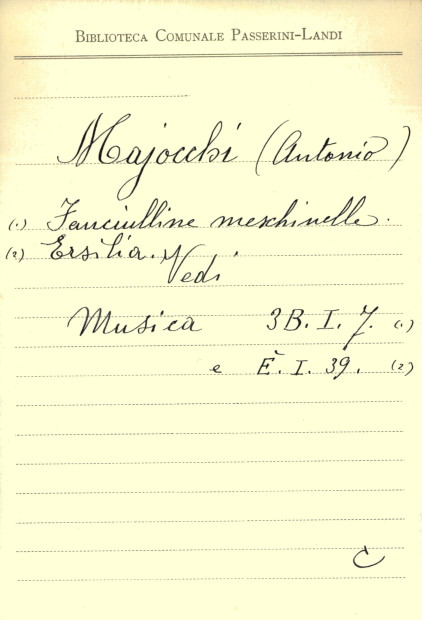 BIBLIOTECA COMUNALE PASSERINI-LANDI
Majocchi (Antonio)
(1) Fanciulline meschinelle.
(2) Ersilia. Vedi
Musica 3B. I. 7. (1)
e E. I. 39. (2)
C